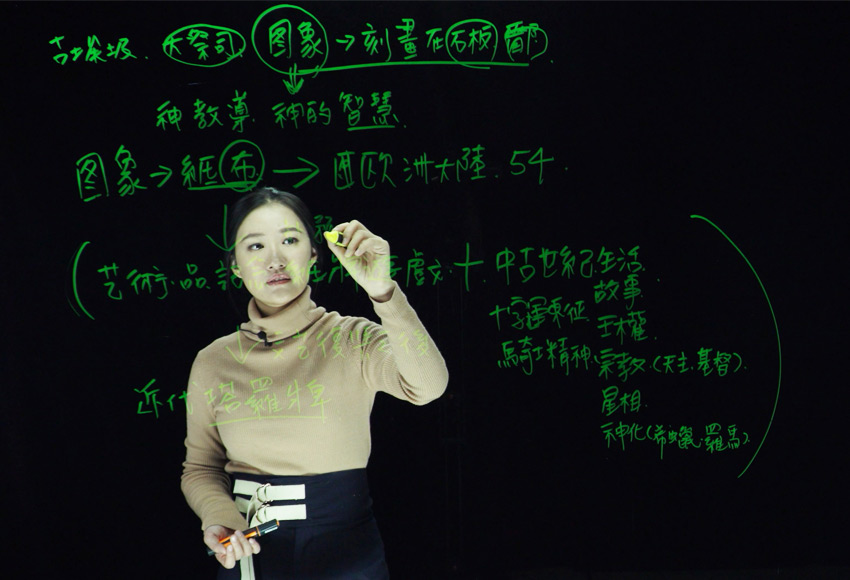 古埃及 大祭司 图象→刻畫在石板
神教導 神的智慧
图象→紙布→西欧洲大陸. 54.
(艺術品 戲+中古世紀生活
故事
十字軍東征 王權
騎士精神 宗教(天主.基督).
星相.
近代塔羅牌
神化(希蠟.羅馬)